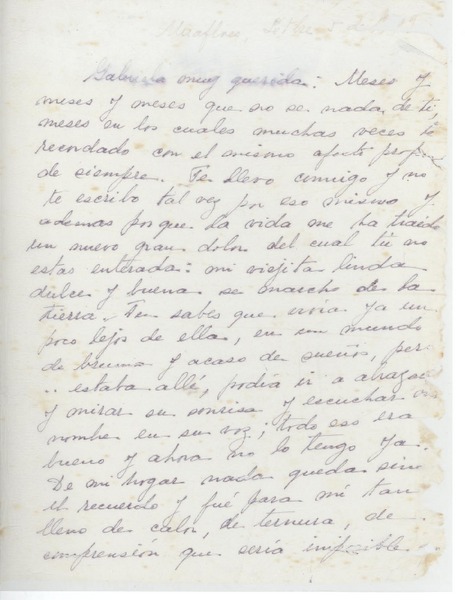 Gabriela muy querida: Meses y
meses y meses que no se nada de ti,
meses en los cuales muchas veces te
recordado con el mismo afecto
de siempre. Te llevo conmigo y no
te escribo tal vez por eso mismo y
ademas porque la vida me ha traido
un nuevo gran dolor del cual tu no
estas enterada: mi viejita linda
dulce y buena se marchó de la
tierra. Tu sabes que vivia ya un
poco lejos de ella, en un mundo
de bruma y acaso de sueños, per
estaba allí, podía ir a
y mirar su sonrisa y escuchar
nombre en su voz; todo eso era
bueno y ahora no lo tengo ya.
De mi hogar nada queda sino
el recuerdo y fué para mí tan
lleno de calor, de ternura, de
comprensión que sería imposible